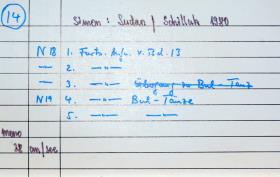 14
Simon: Sudan / Schilluk 1980
N 13 1. Forts. Aufn. v. Bd. 13
—— 2. —〃—
—— 3. —〃— Übergang zu Bul-Tänze
N 19 4. Bul-Tänze
5. —〃— —〃—
mono
38 cm/sec